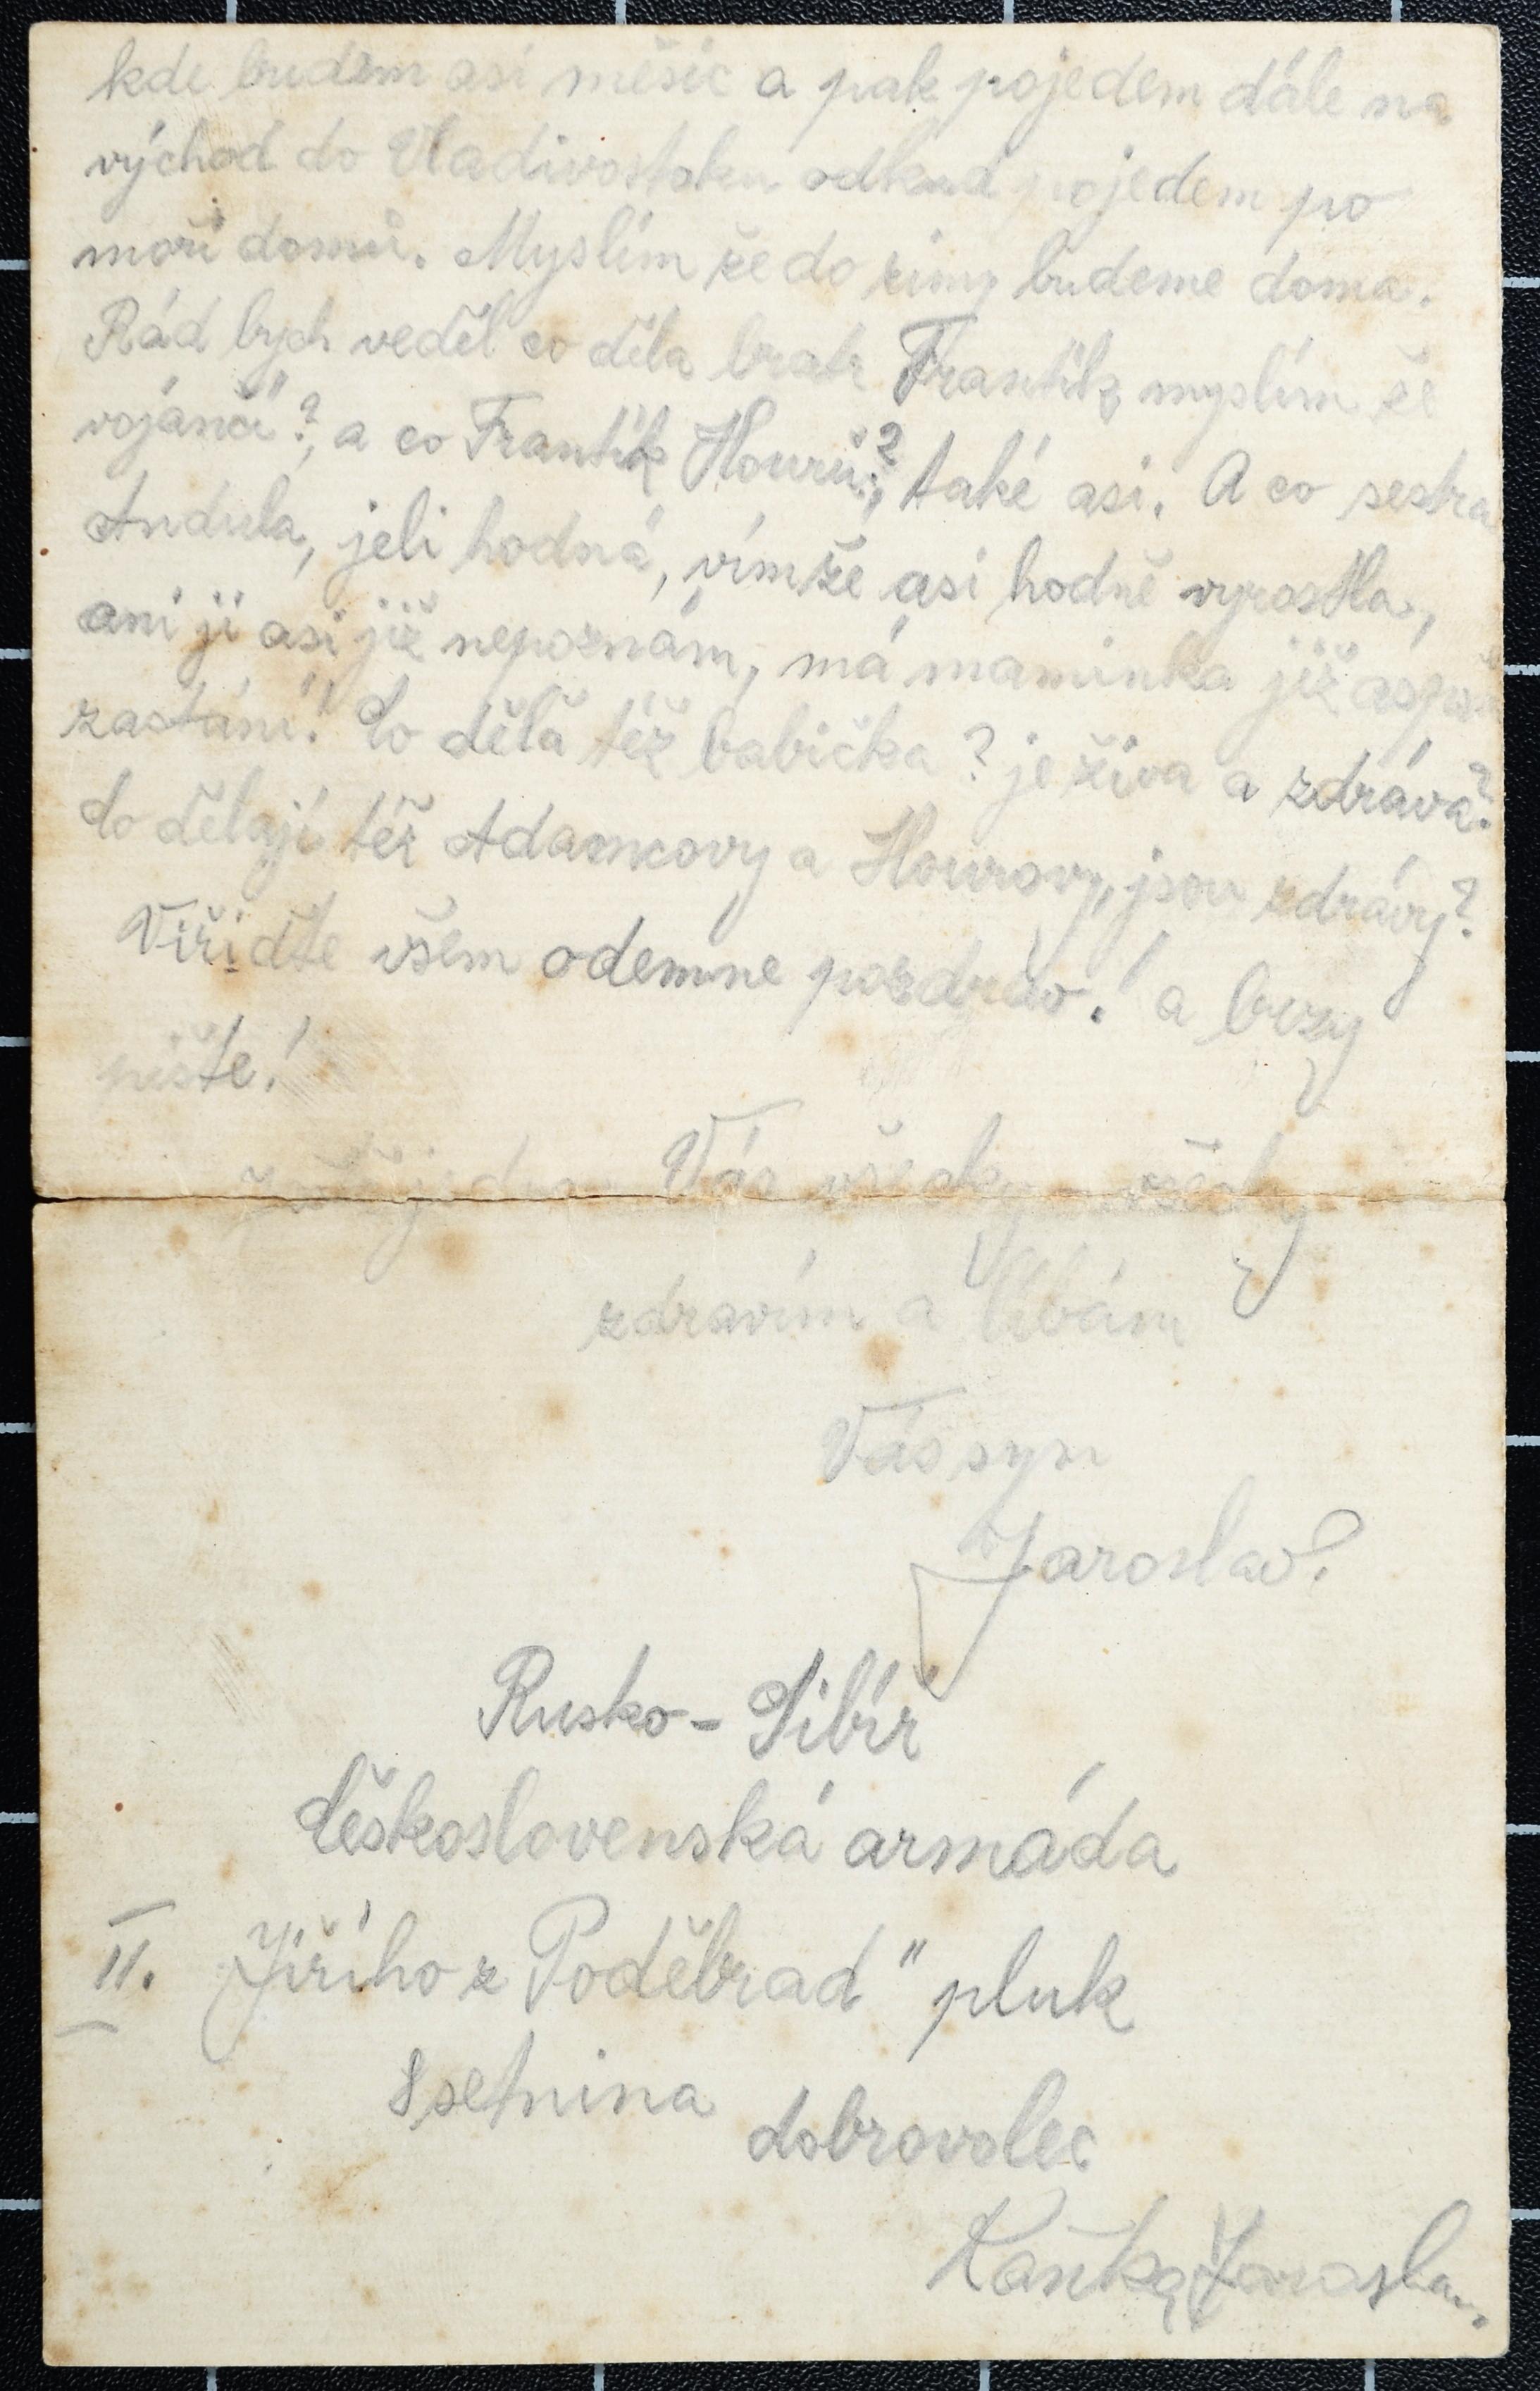 kde budem asi měsíc a pak pojedem dále na
východ do Vladivostoku odkud pojedem po
moři domů. Myslím že do zimy budeme doma.
Rád bych veděl co děla bratr Frantík, myslím že
vojánčí?, a co Frantík Hourů?, také asi. A co sestra
Andula, jeli hodná, vím že asi hodně vyrostla,
ani ji asi již nepoznám, má maminka již aspoň
zastání! Co dělá též babička? je živa a zdráva?
Co dělají též Adamcovy a Hourovy, jsou zdrávy?
Viřiďte všem odemne pozdrav! a brzy
pište!
Vás všecky
zdravím a líbám
Váš syn
Jaroslav.
Rusko - Sibíř
Čéskoslovenská armáda
II. Jiřího z Poděbrad" pluk
8 setnina
dobrovolec
Kaňka Jaroslav.